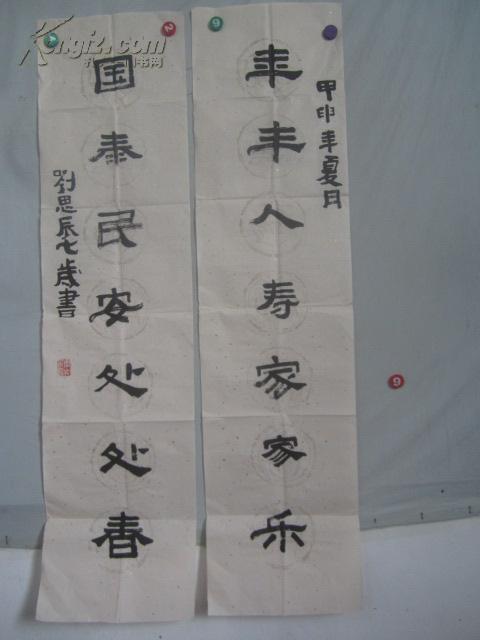 甲申年夏月
年丰人寿家家乐
国泰民安处处春
劉思辰七歲書
Kongfz.com
孔夫子旧书网